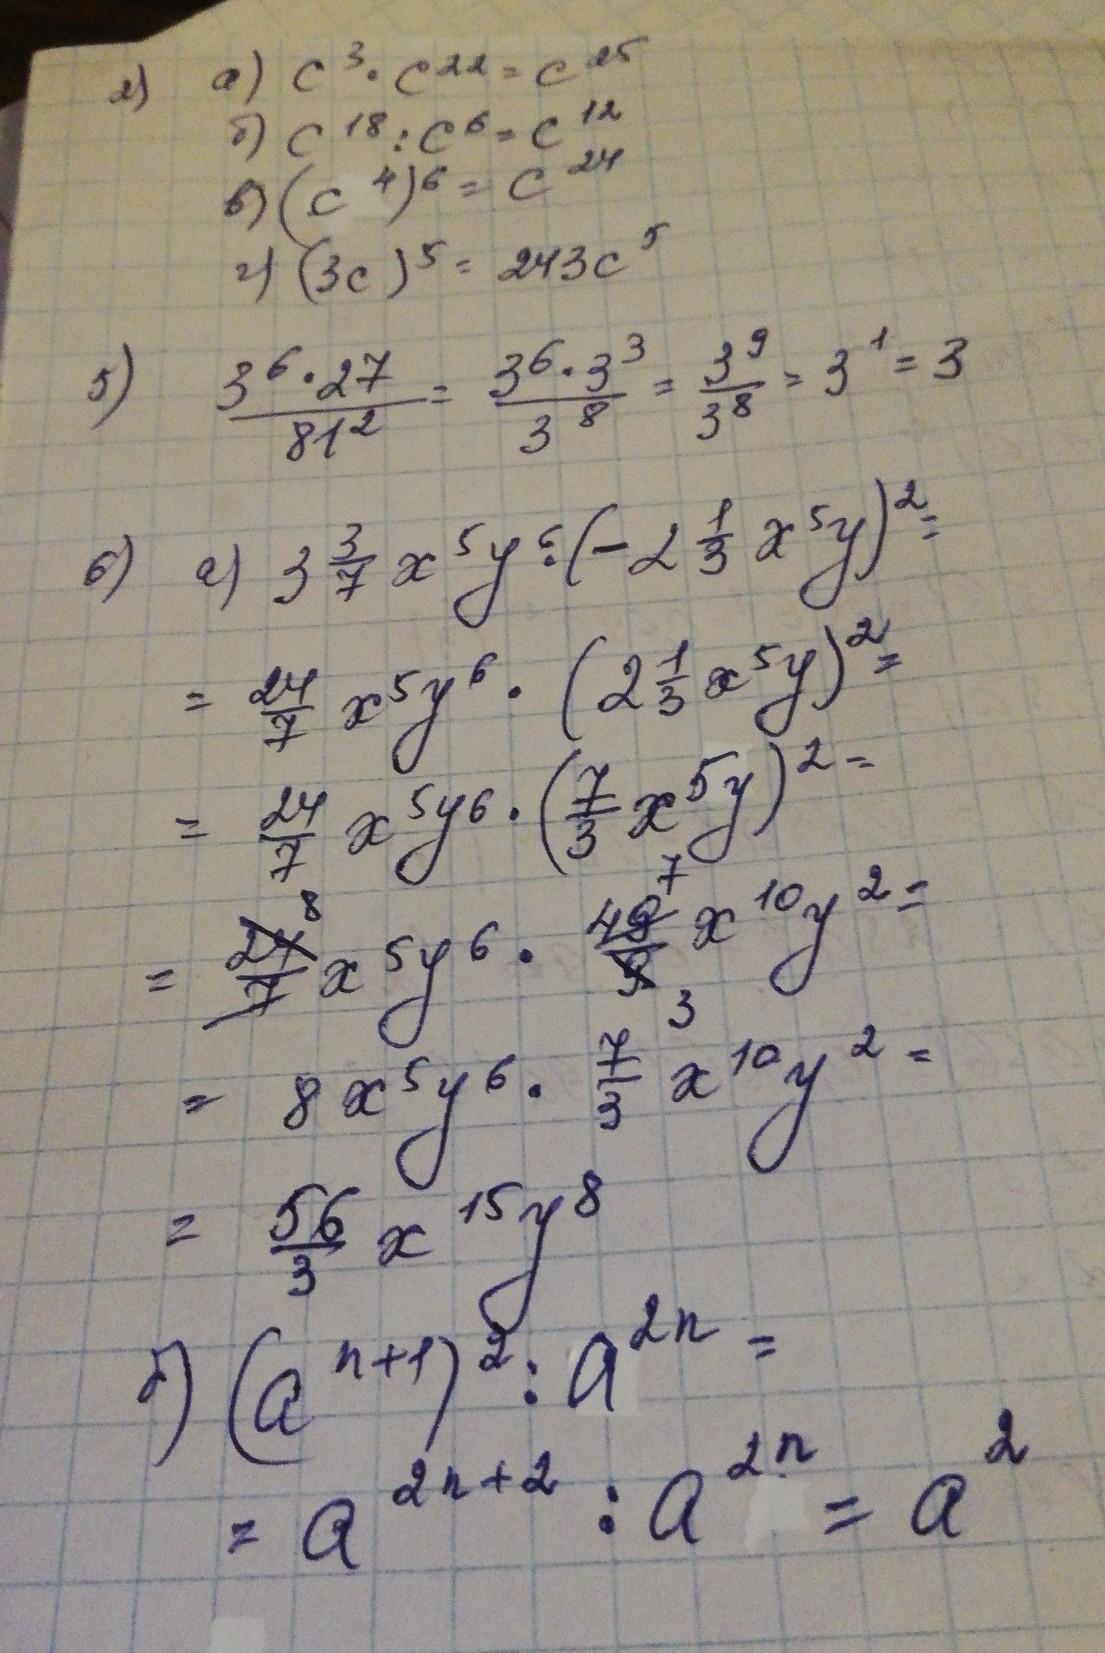 2) а) c³ · c²² = c²⁵
б) c¹⁸ : c⁶ = c¹²
в) (c⁴)⁶ = c²⁴
г) (3c)⁵ = 243c⁵
5) 3⁶ · 27 / 81² = 3⁶ · 3³ / 3⁸ = 3⁹ / 3⁸ = 3¹ = 3
6) а) 3 3/7 x⁵y⁶ · (-2 1/3 x⁵y)² =
= 24/7 x⁵y⁶ · (2 1/3 x⁵y)² =
= 24/7 x⁵y⁶ · (7/3 x⁵y)² =
= 24/7 8 x⁵y⁶ · 49/9 7 3 x¹⁰y² =
= 8x⁵y⁶ · 7/3 x¹⁰y² =
= 56/3 x¹⁵y⁸
б) (aⁿ⁺¹)² : a²ⁿ =
= a²ⁿ⁺² : a²ⁿ = a²